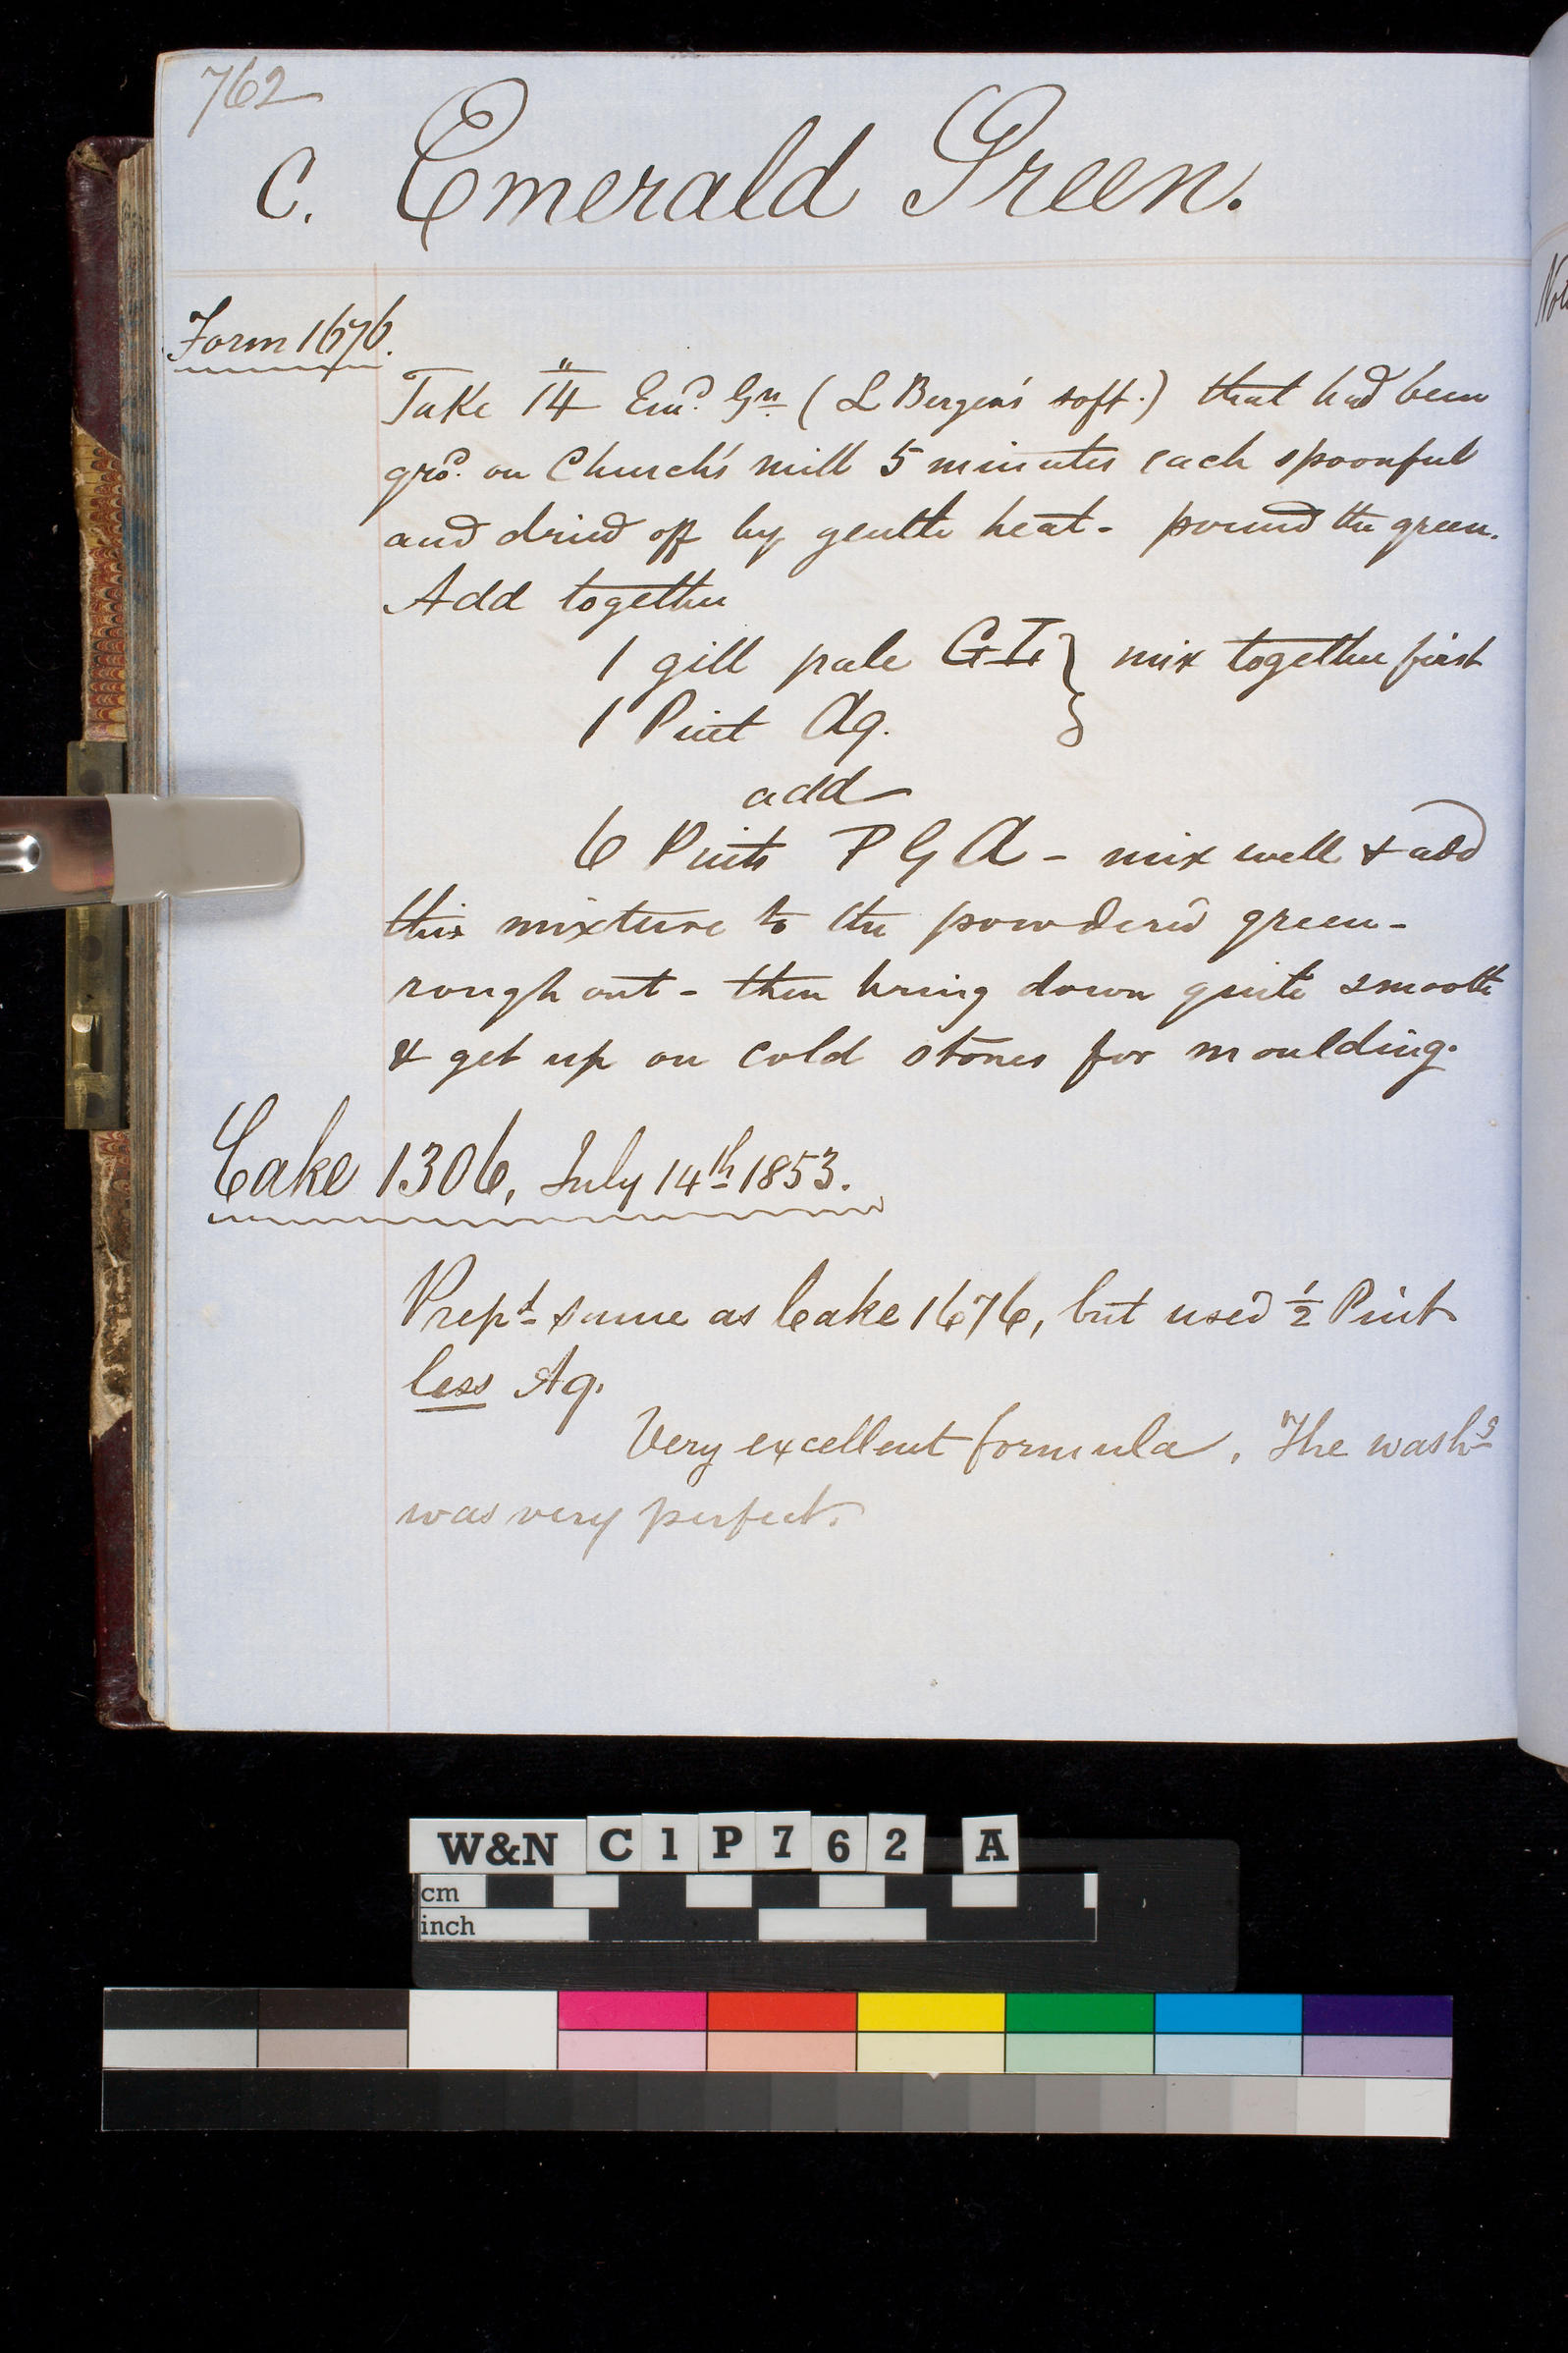 762
C. Emerald Green.
Form 1676.
Take 14" Emd. Gn (L Berger's soft.) that had been
grd. on Church's mill 5 minutes each spoonful
and dried off by gentle heat - pound the green.
Add together
1 gill pale GL } mix together first
1 Pint Aq.
add
6 Pints P G A - mix well & add
this mixture to the powdered green -
rough out - then bring down quite smooth
& get up on cold stones for moulding.
Cake 1306, July 14th 1853.
Prepd same as Cake 1676, but used ½ Pint
less Aq.
Very excellent formula. The washg
was very perfect.
W&N C1P762 A
cm
inch